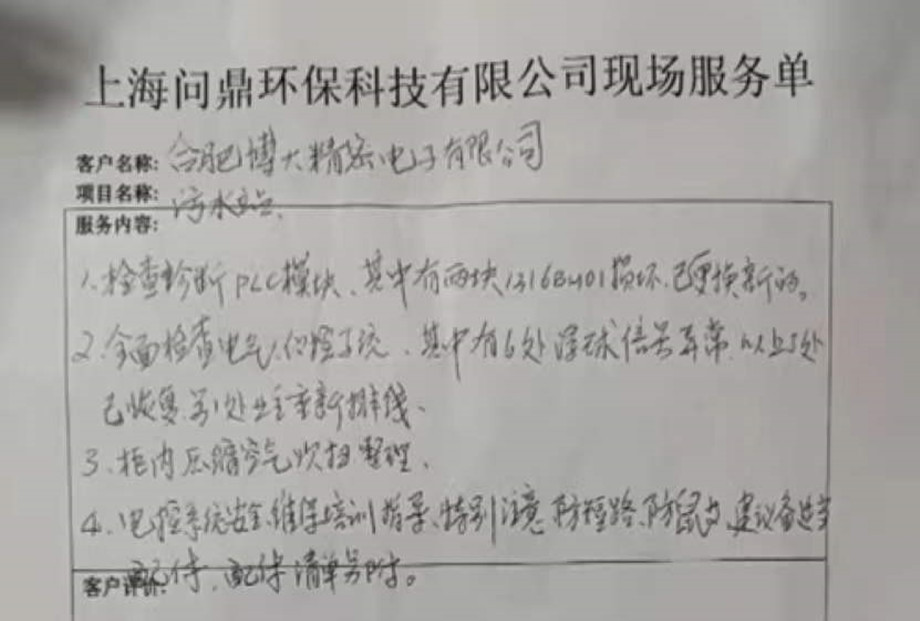 上海问鼎环保科技有限公司现场服务单
客户名称: 合肥博大精密电子有限公司
项目名称: 污水站
服务内容:
1、检查诊断PLC模块、其中有两块损坏.已更换新的。
2、全面检查电气系统、其中有6处浮球信号异常.以上5处
已恢复.另1处业主重新排线、
3、柜内压缩空气吹扫整理、
4、电控系统安全、维保培训指导、特别注意防短路、防鼠、建议备
配件、配件清单另附。
客户评价: